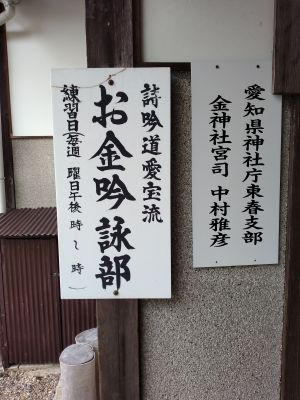 愛知県神社庁東春支部
金神社宮司 中村雅彦
詩吟道愛宝流
お金吟詠部
練習日(毎週 曜日午後 時〜 時)